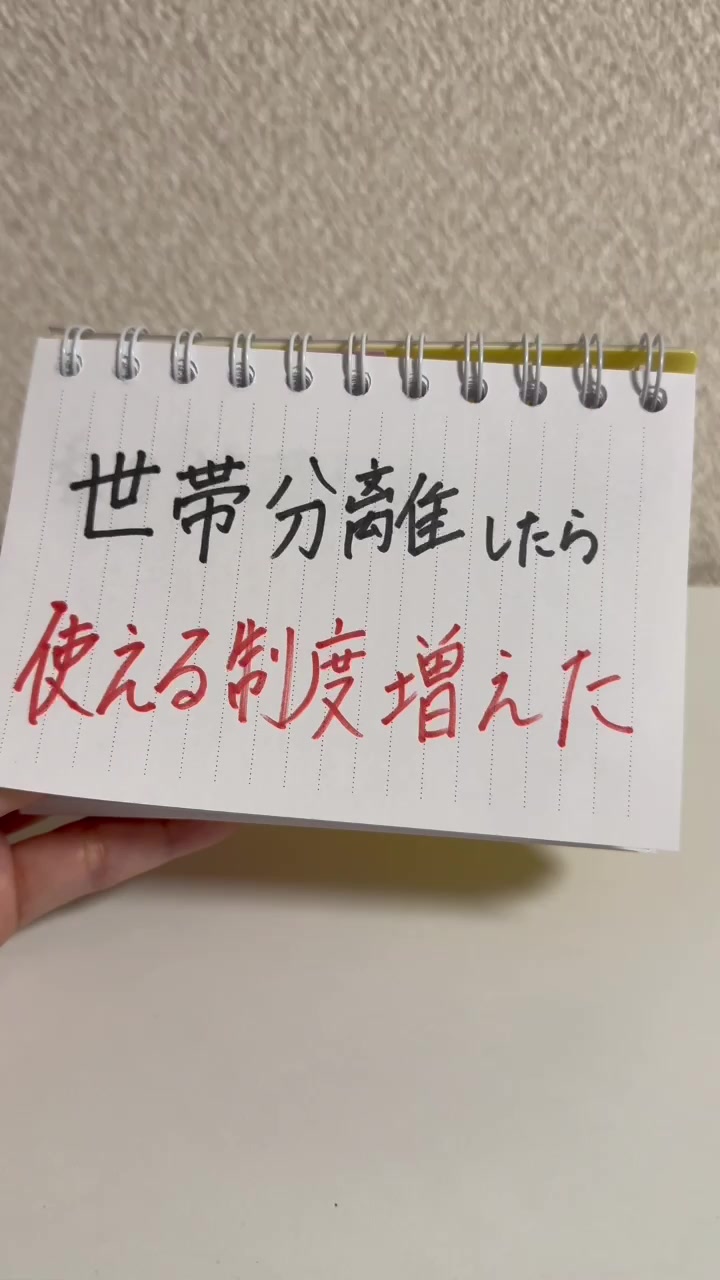 世帯分離したら
使える制度増えた